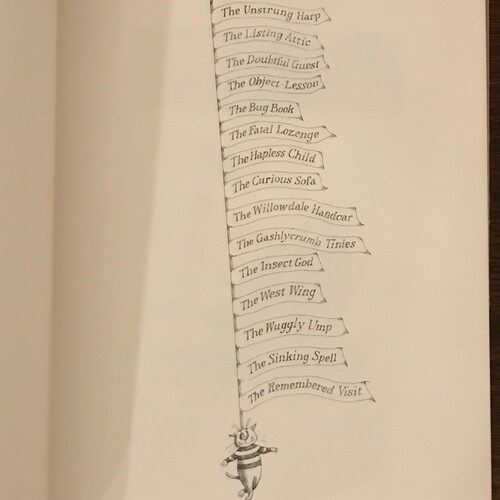 The Unstrung Harp
The Listing Attic
The Doubtful Guest
The Object-Lesson
The Bug Book
The Fatal Lozenge
The Hapless Child
The Curious Sofa
The Willowdale Handcar
The Gashlycrumb Tinies
The Insect God
The West Wing
The Wuggly Ump
The Sinking Spell
The Remembered Visit